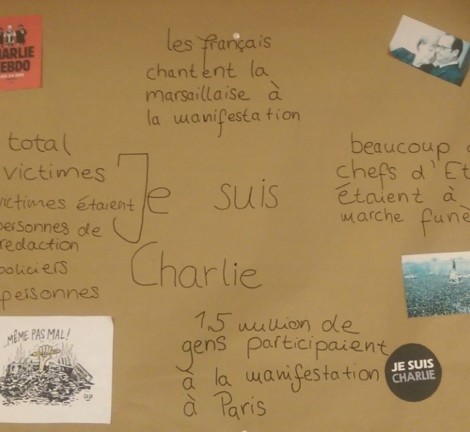 CHARLIE
HEBDO
les français
chantent la
marsaillaise à
la manifestation
total
victimes
victimes étaient
personnes de
redaction
policiers
personnes
Je suis
Charlie
beaucoup
chefs d'Et
étaient à
marche funè
MÊME PAS MAL!
1,5 million de
gens participaient
à la manifestation
à Paris
JE SUIS
CHARLIE